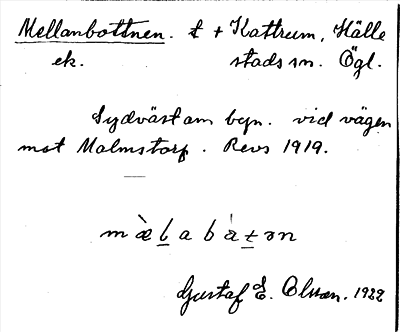 Mellanbottnen. t + Kattrum, Hälle
ek. stads sn. Ögl.
Sydväst om byn. vid vägen
mot Malmstorp. Revs 1919.
m æ̀ l a b å̀ t ə n
Gustaf E. Olsson. 1922